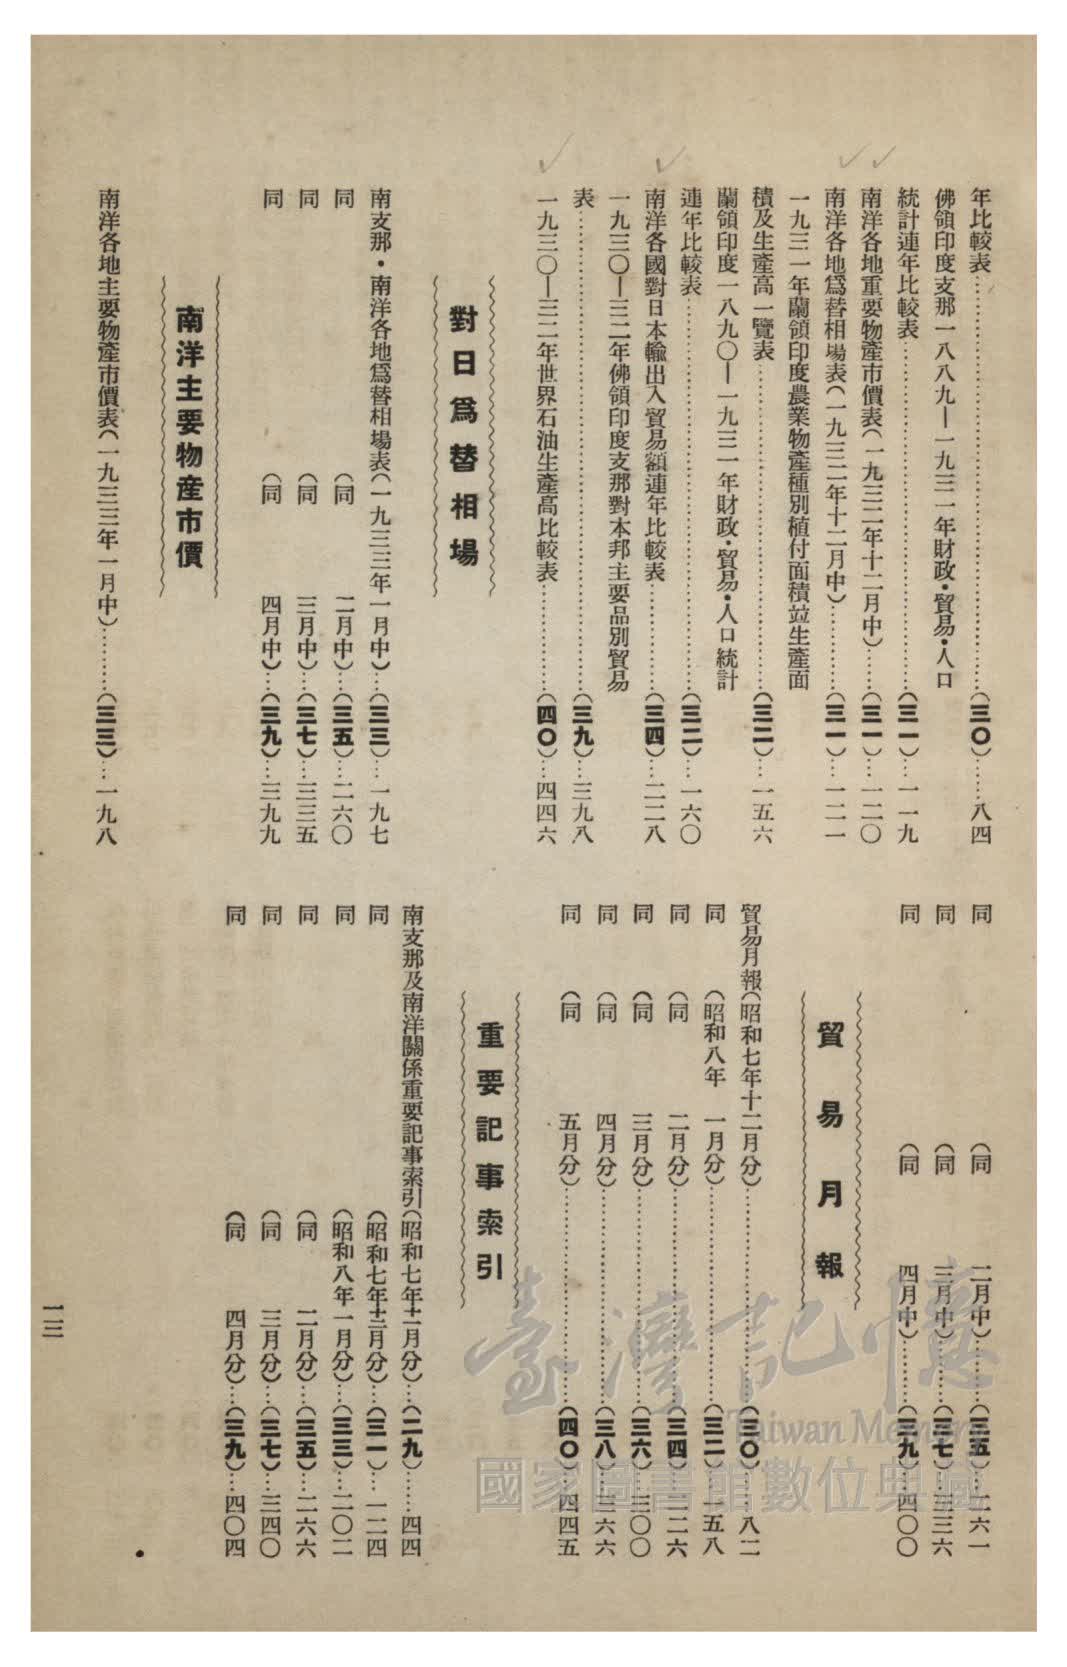 年比較表……(三〇)……八四
佛領印度支那一八八九—一九三一年財政・貿易・人口
統計連年比較表……(三一)…一一九
南洋各地重要物產市價表(一九三二年十二月中)……(三一)…一二〇
南洋各地爲替相場表(一九三二年十二月中)……(三一)…一二一
一九三一年蘭領印度農業物產種別植付面積竝生產面
積及生產高一覽表……(三二)…一五六
蘭領印度一八九〇—一九三一年財政・貿易・人口統計
連年比較表……(三二)…一六〇
南洋各國對日本輸出入貿易額連年比較表……(三四)…二二八
一九三〇—三二年佛領印度支那對本邦主要品別貿易
表……(三九)…三九八
一九三〇—三二年世界石油生產高比較表……(四〇)…四四六
對日爲替相場
南支那・南洋各地爲替相場表(一九三三年一月中)…(三三)…一九七
同 (同 二月中)…(三五)…二六〇
同 (同 三月中)…(三七)…三三五
同 (同 四月中)…(三九)…三九九
南洋主要物産市價
南洋各地主要物產市價表(一九三三年一月中)……(三三)…一九八
同 (同 二月中)……(三五)…二六一
同 (同 三月中)……(三七)…三三六
同 (同 四月中)……(三九)…四〇〇
貿易月報
貿易月報(昭和七年十二月分)……(三〇)……八二
同 (昭和八年 一月分)……(三二)…一五八
同 (同 二月分)……(三四)…二二六
同 (同 三月分)……(三六)…三〇〇
同 (同 四月分)……(三八)…三六六
同 (同 五月分)……(四〇)…四四五
重要記事索引
南支那及南洋關係重要記事索引(昭和七年十一月分)…(二九)……四四
同 (昭和七年十二月分)…(三一)…一二四
同 (昭和八年一月分)…(三三)…二〇二
同 (同 二月分)…(三五)…二六六
同 (同 三月分)…(三七)…三四〇
同 (同 四月分)…(三九)…四〇四
一三
臺灣記憶
Taiwan Memory
國家圖書館數位典藏